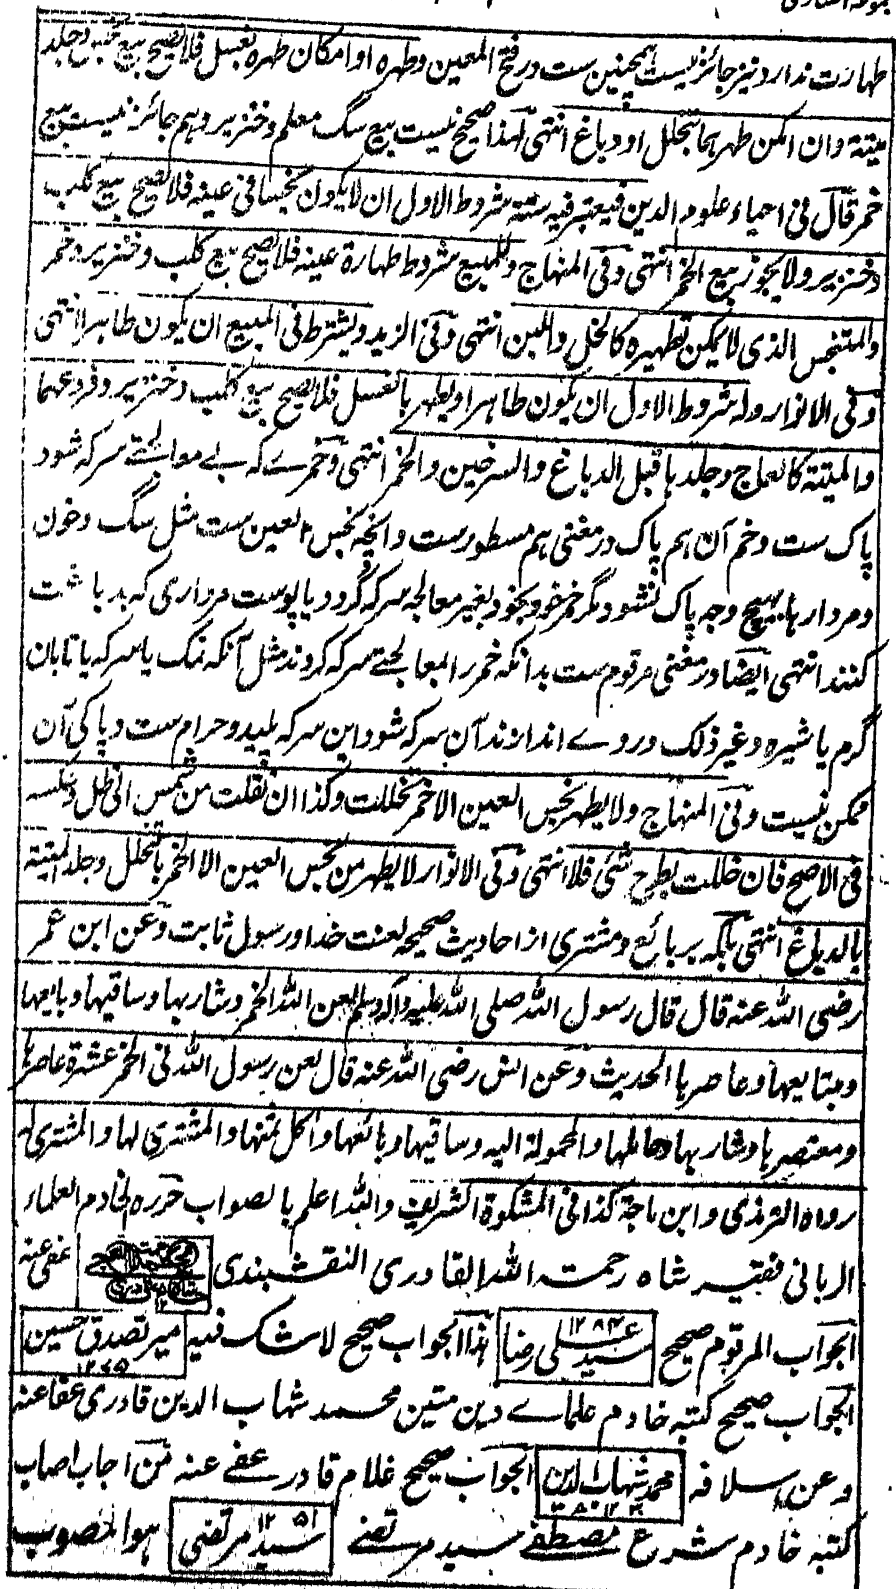 طهارت ندارد نیز جائز نیست همچنین ست در فتح المعین وطهره او امکان طهره بغسل فلا یصح بیع نجس وجلد
میتة وان امکن طهرها بتخلل او دباغ انتهی لهذا صحیح نیست بیع سگ معلم وخنزیر وهم جائز نیست بیع
خمر قال فی احیاء علوم الدین فیعتبر فیه ستة شروط الاول ان لا یکون نجسا فی عینه فلا یصح بیع کلب
وخنزیر ولا یجوز بیع الخمر انتهی وفی المنهاج وللمبیع شروط طهارة عینه فلا یصح بیع کلب وخنزیر وخمر
والمتنجس الذی لا یمکن تطهیره کالخل واللبن انتهی وفی الزبد ویشترط فی المبیع ان یکون طاهرا انتهی
وفی الانوار وله شروط الاول ان یکون طاهرا ویطهر بالغسل فلا یصح بیع کلب وخنزیر وفرعهما
والمیتة کالعاج وجلدها قبل الدباغ والسرجین والخمر انتهی وخمرے که بے معالجتے سرکه شود
پاک ست وخم آن هم پاک در مغنی هم مسطورست وانچه نجس العین ست مثل سگ وخون
ومردارها بهیچ وجه پاک نشود مگر خمر خود بخود بغیر معالجه سرکه گردد یا پوست مرداری که بدباغت
کنند انتهی ایضا در مغنی مرقوم ست بدانکه خمر را بمعالجتے سرکه کردند مثل آنکه نمک یا سرکه یا تابان
گرم یا شیره وغیر ذلک در وے اندازند آن سرکه شود این سرکه پلید وحرام ست وپاکی آن
ممکن نیست وفی المنهاج ولا یطهر نجس العین الا خمر تخللت وکذا ان نقلت من شمس الی ظل وعکسه
فی الاصح فان خللت بطرح شئ فلا انتهی وفی الانوار لا یطهر من نجس العین الا الخمر بالتخلل وجلد المیتة
بالدباغ انتهی بلکه بر بائع ومشتری از احادیث صحیحه لعنت خدا ورسول ثابت وعن ابن عمر
رضی الله عنه قال قال رسول الله صلی الله علیه وآله وسلم لعن الله الخمر وشاربها وساقیها وبایعها
ومبتایعها وعاصرها الحدیث وعن انس رضی الله عنه قال لعن رسول الله فی الخمر عشرة عاصرها
ومعتصرها وشاربها وحاملها والمحمولة الیه وساقیها وبائعها واکل ثمنها والمشتری لها والمشتری له
رواه الترمذی وابن ماجة کذا فی المشکوة الشریف والله اعلم بالصواب حرره خادم العلماء
الربانی فقیر شاه رحمت الله القادری النقشبندی عفی عنه
الجواب المرقوم صحیح سید علی رضا ۱۲۸۴ هذا الجواب صحیح لا شک فیه میر تصدق حسین ۱۲۶۵
الجواب صحیح کتبه خادم علماے دین متین محمد شهاب الدین قادری عفا عنه
وعن اسلافه محمد شهاب الدین الجواب صحیح غلام قادر عفے عنه من اجاب اصاب
کتبه خادم شرع مصطفے سید مرتضے سید مرتضی ۱۲۵۱ هو المصوب